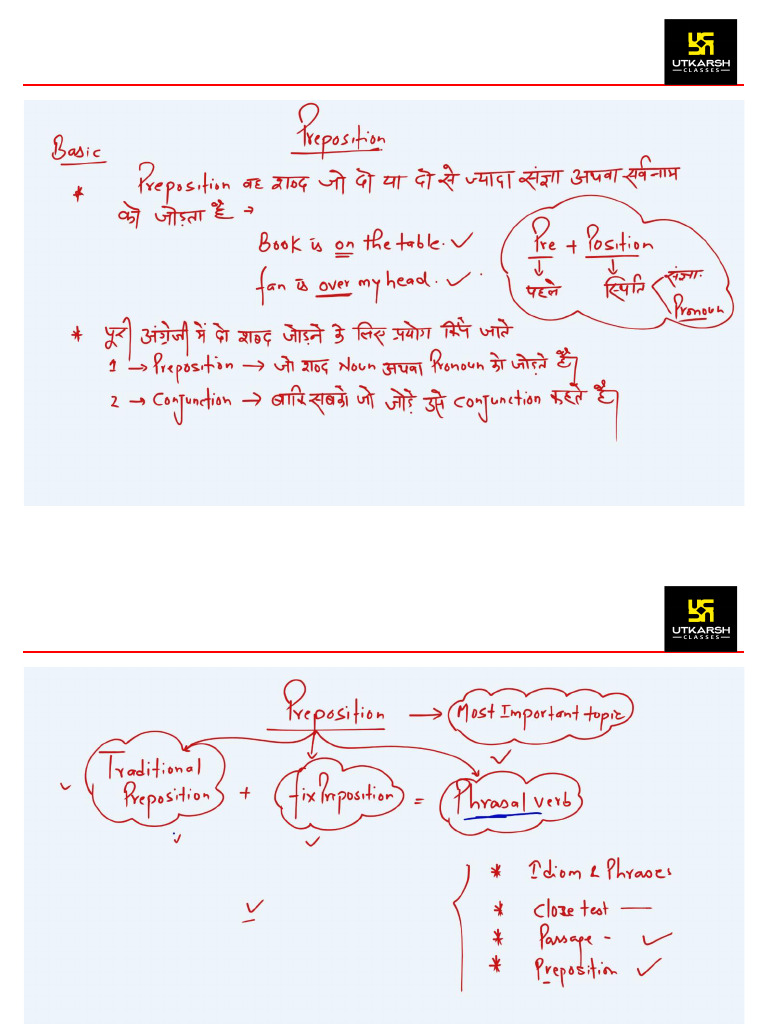 UTKARSH
CLASSES
Preposition
Basic
* Preposition वह शब्द जो दो या दो से ज्यादा संज्ञा अथवा सर्वनाम
को जोड़ता है →
Book is on the table. ✓
fan is over my head. ✓
Pre + Position
↓ ↓
पहले स्थिति
संज्ञा
Pronoun
* पूरी अंग्रेजी में दो शब्द जोड़ने के लिए प्रयोग किये जाते
1 → Preposition → जो शब्द Noun अथवा Pronoun को जोड़ते है
2 → Conjunction → बाकि सबको जो जोड़े उसे Conjunction कहते है
UTKARSH
CLASSES
Preposition → Most Important topic
Traditional
Preposition + fix Preposition = Phrasal verb
* Idiom & Phrases
* Cloze test —
* Passage - ✓
* Preposition ✓